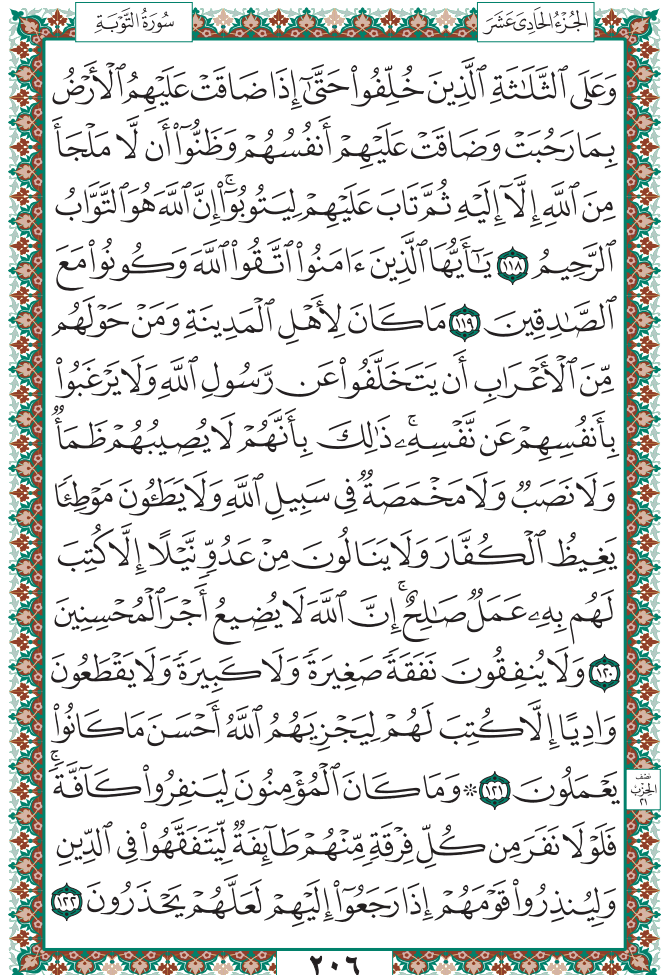 الجُزْءُ الحَادِىَ عَشَرَ
سُورَةُ التَّوْبَةِ
وَعَلَى ٱلثَّلَـٰثَةِ ٱلَّذِينَ خُلِّفُوا۟ حَتَّىٰٓ إِذَا ضَاقَتْ عَلَيْهِمُ ٱلْأَرْضُ
بِمَا رَحُبَتْ وَضَاقَتْ عَلَيْهِمْ أَنفُسُهُمْ وَظَنُّوٓا۟ أَن لَّا مَلْجَأَ
مِنَ ٱللَّهِ إِلَّآ إِلَيْهِ ثُمَّ تَابَ عَلَيْهِمْ لِيَتُوبُوٓا۟ ۚ إِنَّ ٱللَّهَ هُوَ ٱلتَّوَّابُ
ٱلرَّحِيمُ ١١٨ يَـٰٓأَيُّهَا ٱلَّذِينَ ءَامَنُوا۟ ٱتَّقُوا۟ ٱللَّهَ وَكُونُوا۟ مَعَ
ٱلصَّـٰدِقِينَ ١١٩ مَا كَانَ لِأَهْلِ ٱلْمَدِينَةِ وَمَنْ حَوْلَهُم
مِّنَ ٱلْأَعْرَابِ أَن يَتَخَلَّفُوا۟ عَن رَّسُولِ ٱللَّهِ وَلَا يَرْغَبُوا۟
بِأَنفُسِهِمْ عَن نَّفْسِهِۦ ۚ ذَٰلِكَ بِأَنَّهُمْ لَا يُصِيبُهُمْ ظَمَأٌ
وَلَا نَصَبٌ وَلَا مَخْمَصَةٌ فِى سَبِيلِ ٱللَّهِ وَلَا يَطَـُٔونَ مَوْطِئًا
يَغِيظُ ٱلْكُفَّارَ وَلَا يَنَالُونَ مِنْ عَدُوٍّ نَّيْلًا إِلَّا كُتِبَ
لَهُم بِهِۦ عَمَلٌ صَـٰلِحٌ ۚ إِنَّ ٱللَّهَ لَا يُضِيعُ أَجْرَ ٱلْمُحْسِنِينَ
١٢٠ وَلَا يُنفِقُونَ نَفَقَةً صَغِيرَةً وَلَا كَبِيرَةً وَلَا يَقْطَعُونَ
وَادِيًا إِلَّا كُتِبَ لَهُمْ لِيَجْزِيَهُمُ ٱللَّهُ أَحْسَنَ مَا كَانُوا۟
يَعْمَلُونَ ١٢١ ۞ وَمَا كَانَ ٱلْمُؤْمِنُونَ لِيَنفِرُوا۟ كَآفَّةً ۚ
نصف
الحِزْبِ
٢١
فَلَوْلَا نَفَرَ مِن كُلِّ فِرْقَةٍ مِّنْهُمْ طَآئِفَةٌ لِّيَتَفَقَّهُوا۟ فِى ٱلدِّينِ
وَلِيُنذِرُوا۟ قَوْمَهُمْ إِذَا رَجَعُوٓا۟ إِلَيْهِمْ لَعَلَّهُمْ يَحْذَرُونَ ١٢٢
٢٠٦